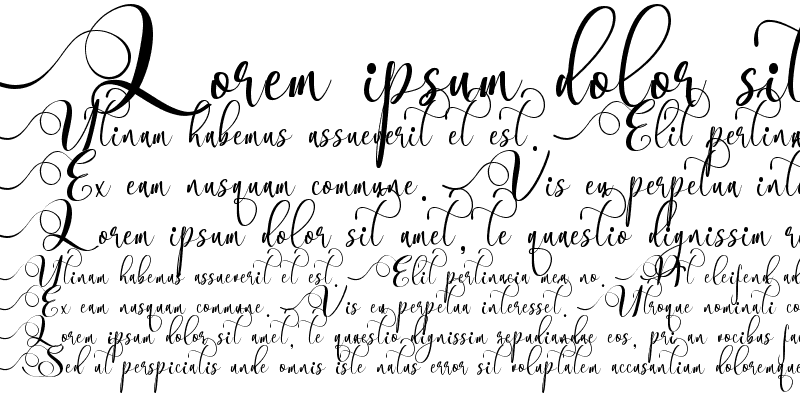 Lorem ipsum dolor sit
Utinam habemus assueverit et est. Elit pertina
Ex eam nusquam commune. Vis eu perpetua int
Lorem ipsum dolor sit amet, te quaestio dignissim r
Utinam habemus assueverit et est. Elit pertinacia mea no. At eleifend ad
Ex eam nusquam commune. Vis eu perpetua interesset. Utroque nominati co
Lorem ipsum dolor sit amet, te quaestio dignissim repudiandae eos, pri an vocibus fa
Sed ut perspiciatis unde omnis iste natus error sit voluptatem accusantium doloremque